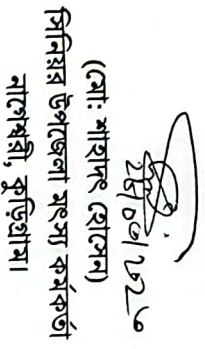 (মো: শাহাদৎ হোসেন)
সিনিয়র উপজেলা মৎস্য কর্মকর্তা
নাগেশ্বরী, কুড়িগ্রাম।